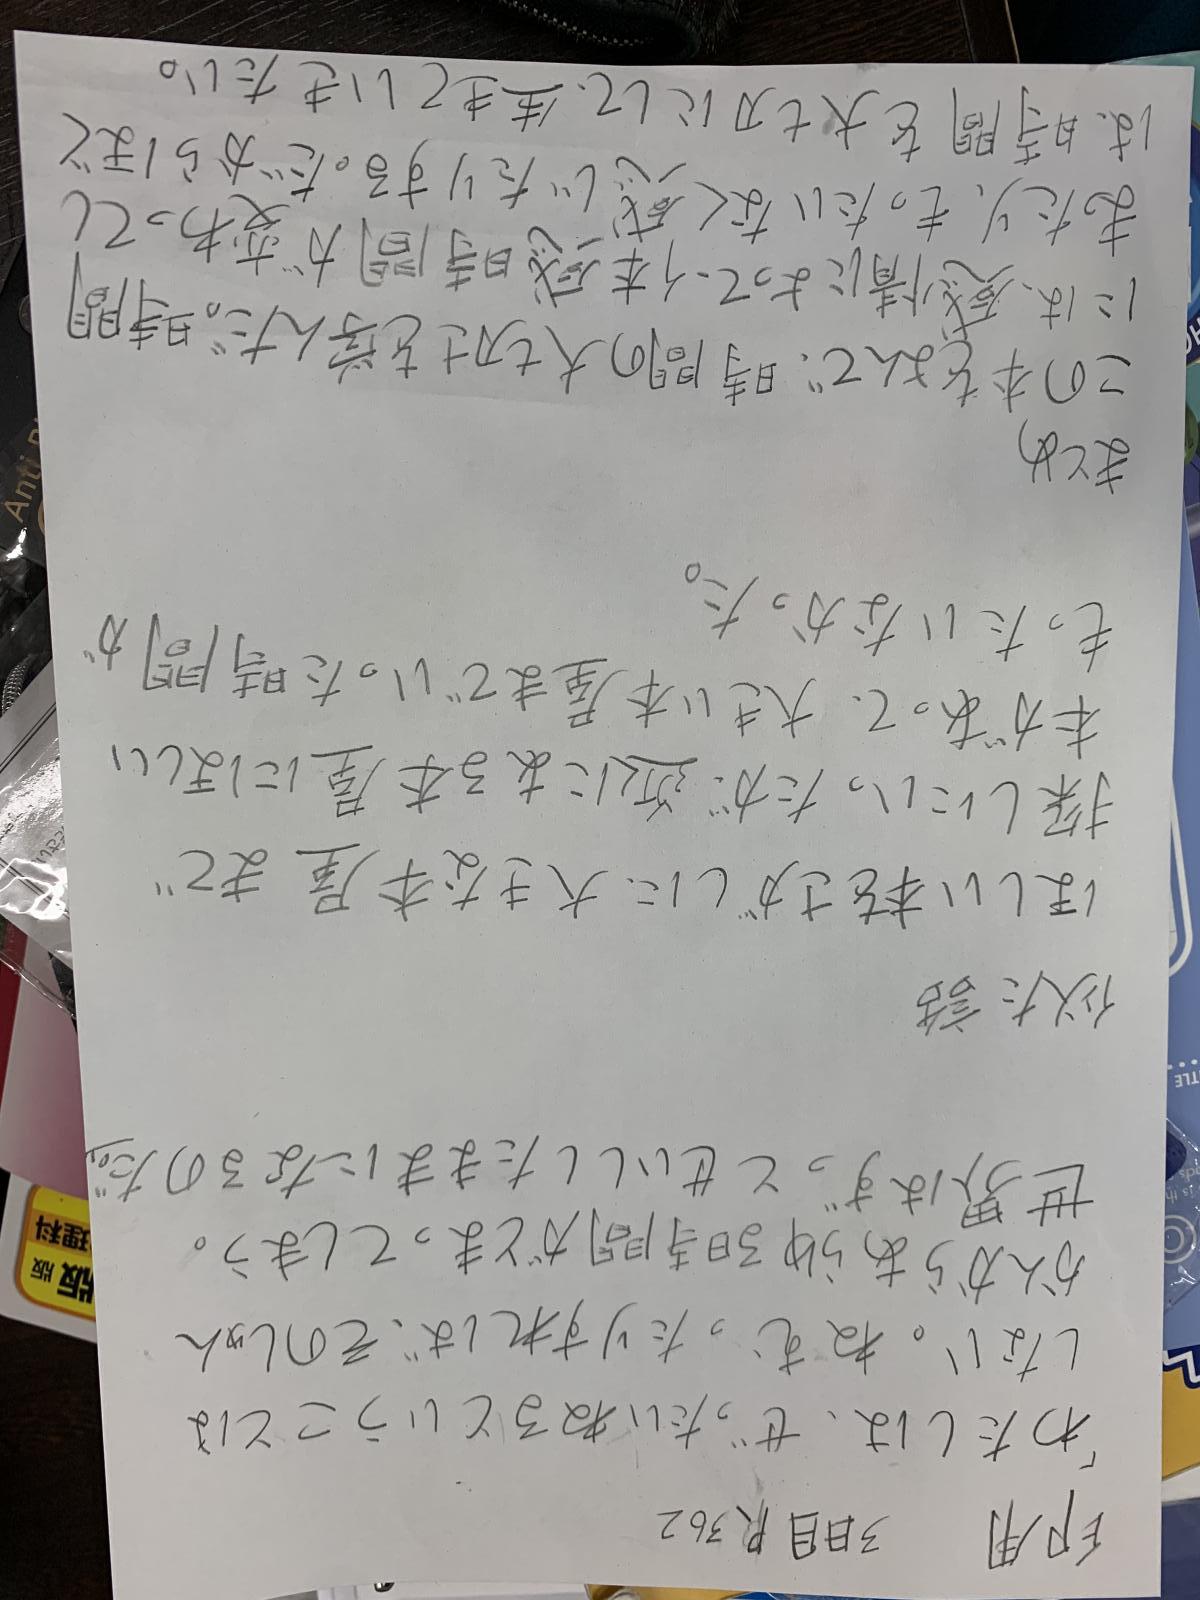 印用 3日目 P.362
「わたしは、ぜったいねるということは
しない。ねむったりすれば、そのしゅん
かんからあらゆる時間がとまってしまう。
世界はずっとせいししたままになるのだ。」
似た話
ほしい本をさがしに、大きな本屋まで
探しにいったが、近くにある本屋にほしい
本があって、大きい本屋までいった時間が
もったいなかった。
まとめ
この本をよんで、時間の大切さを学んだ。時間
には、感情によって、体感時間が変わってし
まったり、もったいなく感じたりする。だからぼく
は、時間を大切にして、生きていきたい。
Anti
理科
版
版
TLE